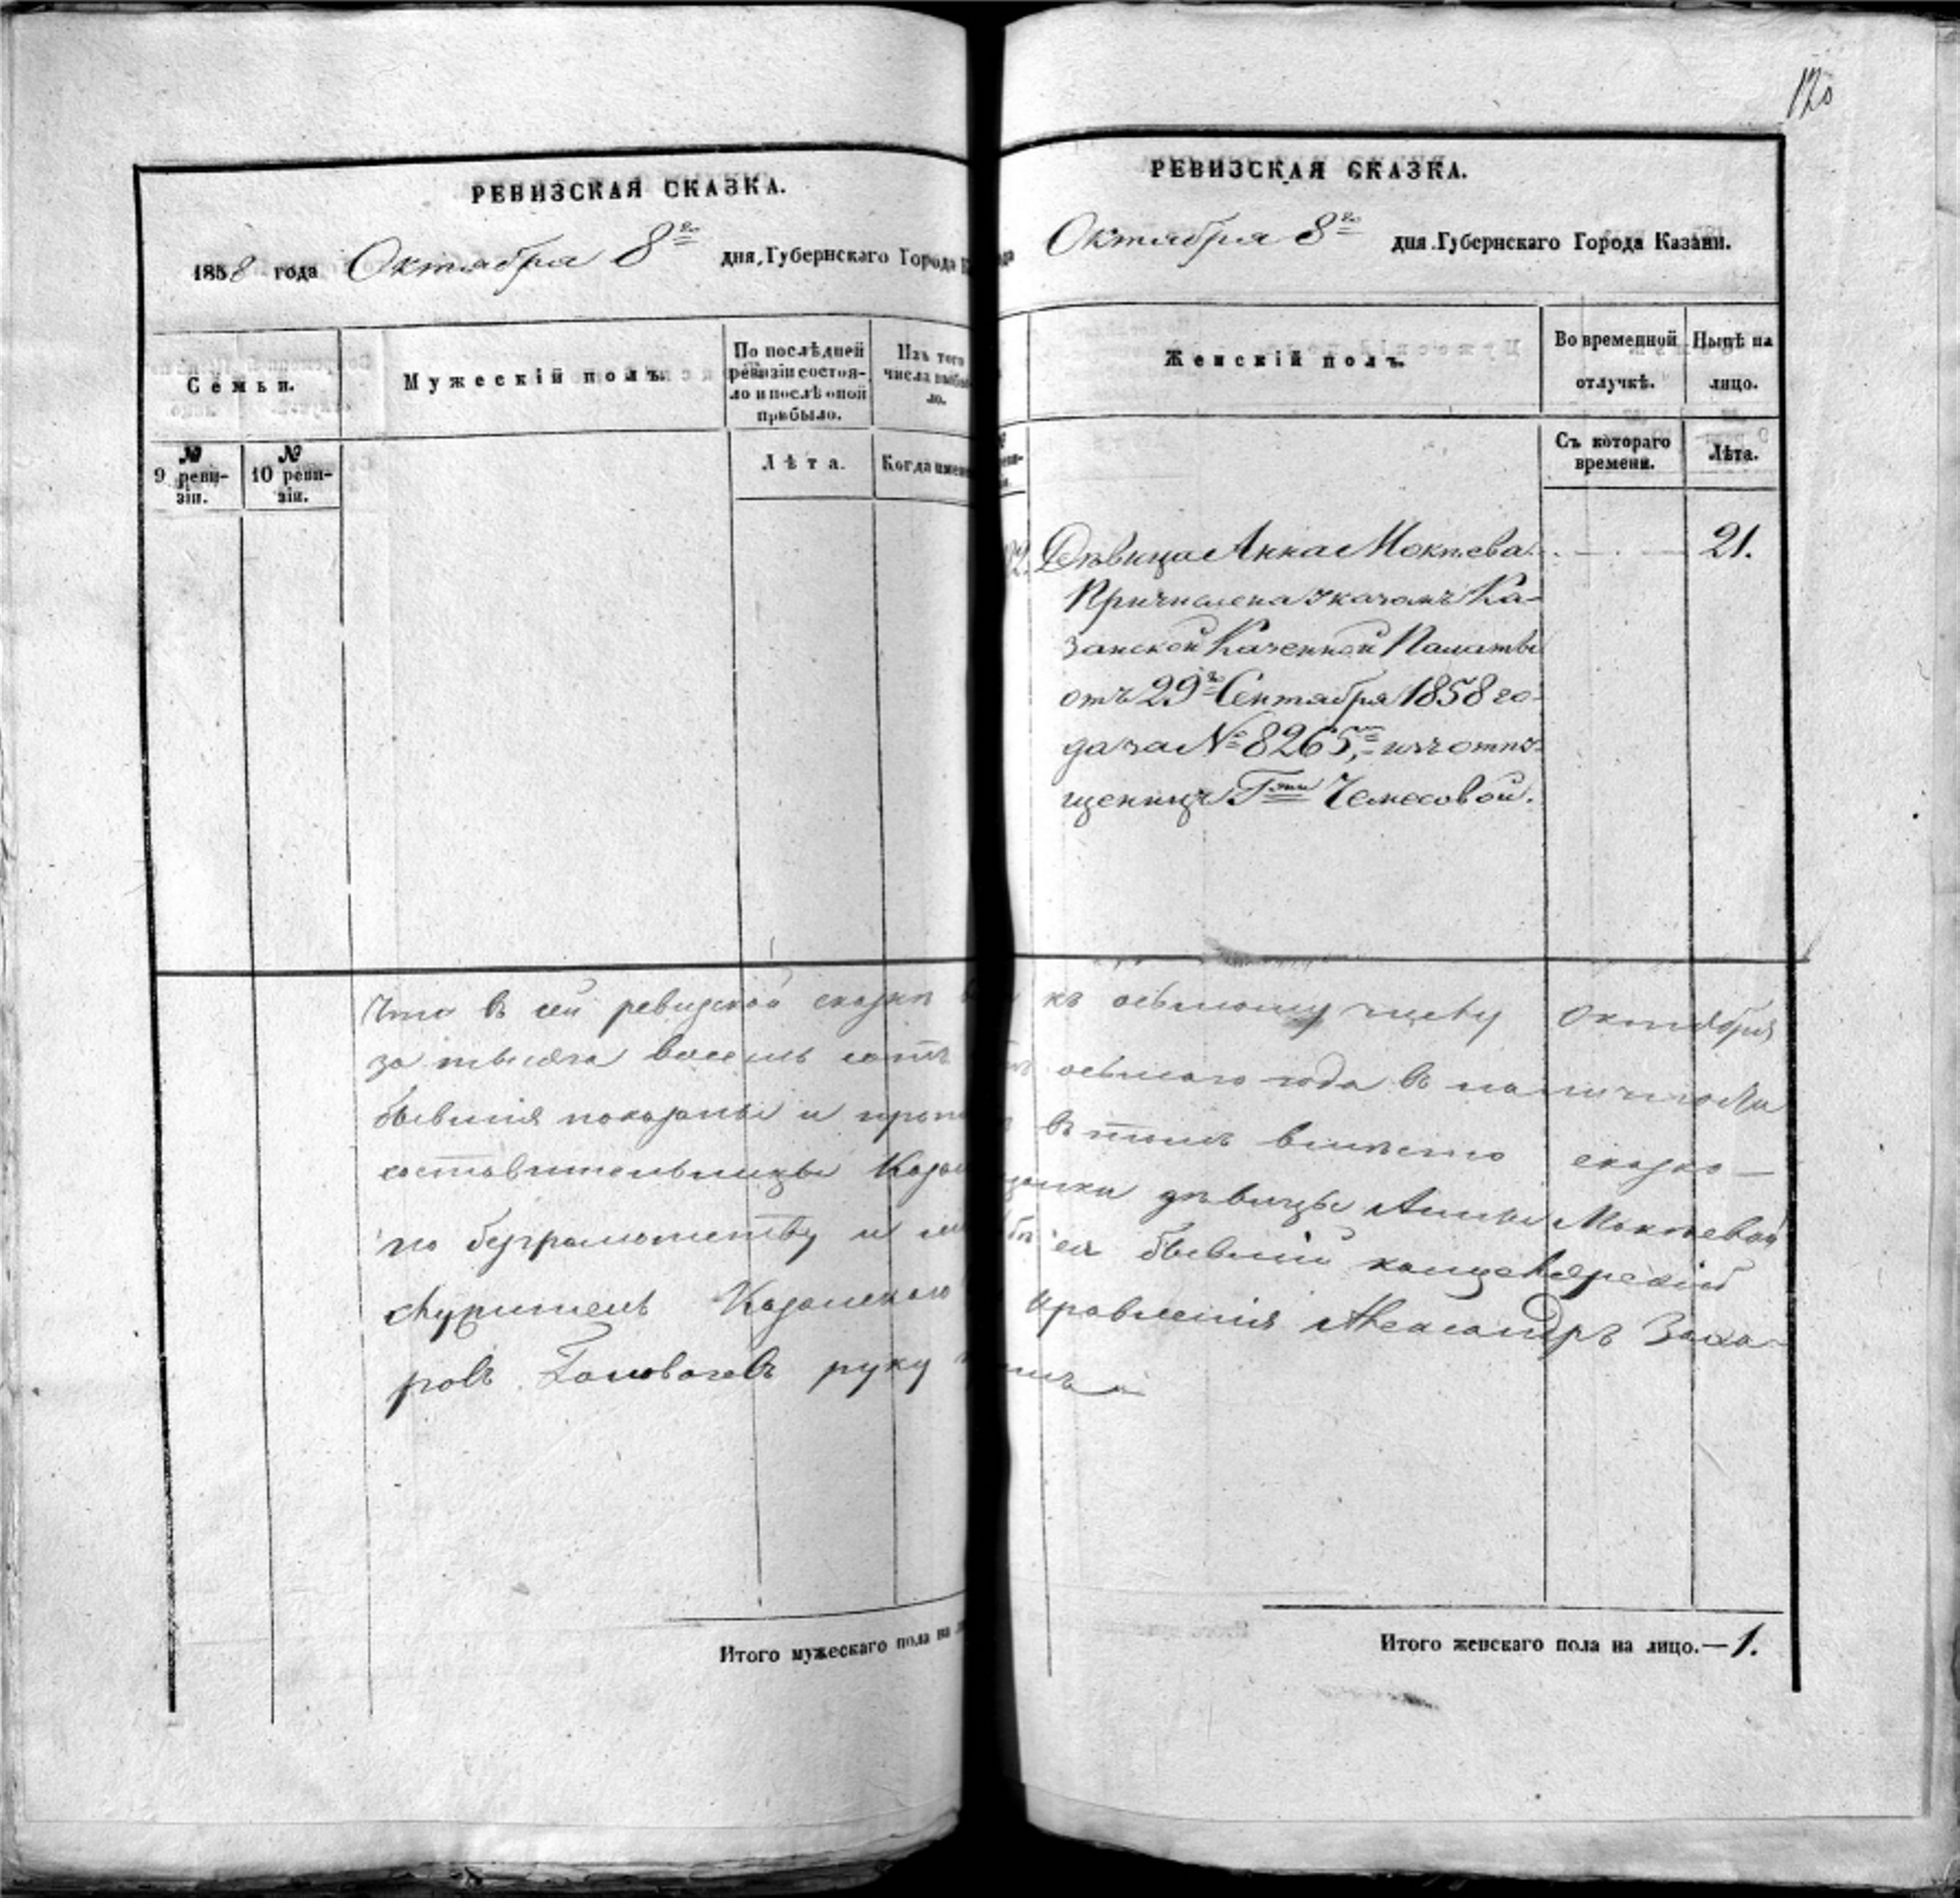 120
РЕВИЗСКАЯ СКАЗКА.
1858 года Октября 8го дня, Губернскаго Города
Семьи.
Мужескій полъ.
По послѣдней ревизіи состояло и послѣ оной прибыло.
Изъ того числа выбыло.
№ 9 ревизіи.
№ 10 ревизіи.
Лѣта.
Когда именно
РЕВИЗСКАЯ СКАЗКА.
Октября 8го дня Губернскаго Города Казани.
Женскій полъ.
Во временной отлучкѣ.
Нынѣ на лицо.
Съ котораго времени.
Лѣта.
Дѣвица Анна Мокѣева. 21.
Причислена указомъ Ка-
занской Казенной Палаты
отъ 29го Сентября 1858 го-
да за № 8265, изъ отпу-
щеницъ Гжи Чемесовой.
Что в сей ревизской сказкѣ къ осьмому числу Октября
за тысяча восемь сотъ осьмаго года в наличности
бывшія показаны и в томъ вмѣсто сказко-
составительницы дѣвицы Анны Мокѣевой
по безграмотству и ея бывшій канцелярскій
служитель Казанскаго Правленія Александръ Заха-
ровъ Головачевъ руку
Итого мужескаго пола на
Итого женскаго пола на лицо.—1.